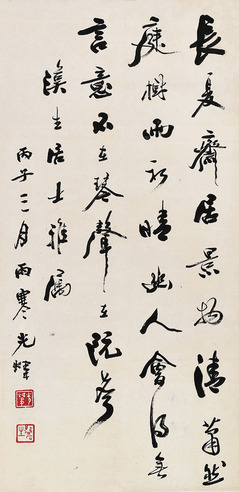 長夏齋居景物清蕭然
庭樹雨初晴幽人會得無
言意不在琴聲在阮
生居士雅屬
丙子三月雨寒光煒